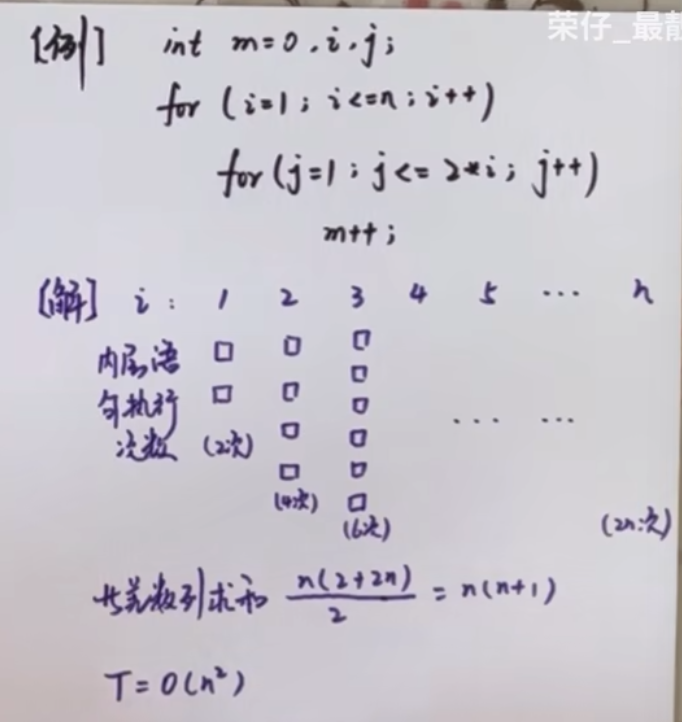 荣仔_最靓
[例] int m=0,i,j;
for (i=1; i<=n; i++)
for(j=1; j<=2*i; j++)
m++;
[解] i: 1 2 3 4 5 ... n
内层语
句执行
次数 (2次)
... ...
(4次)
(6次)
(2n次)
等差数列求和 n(2+2n)/2 = n(n+1)
T=O(n²)